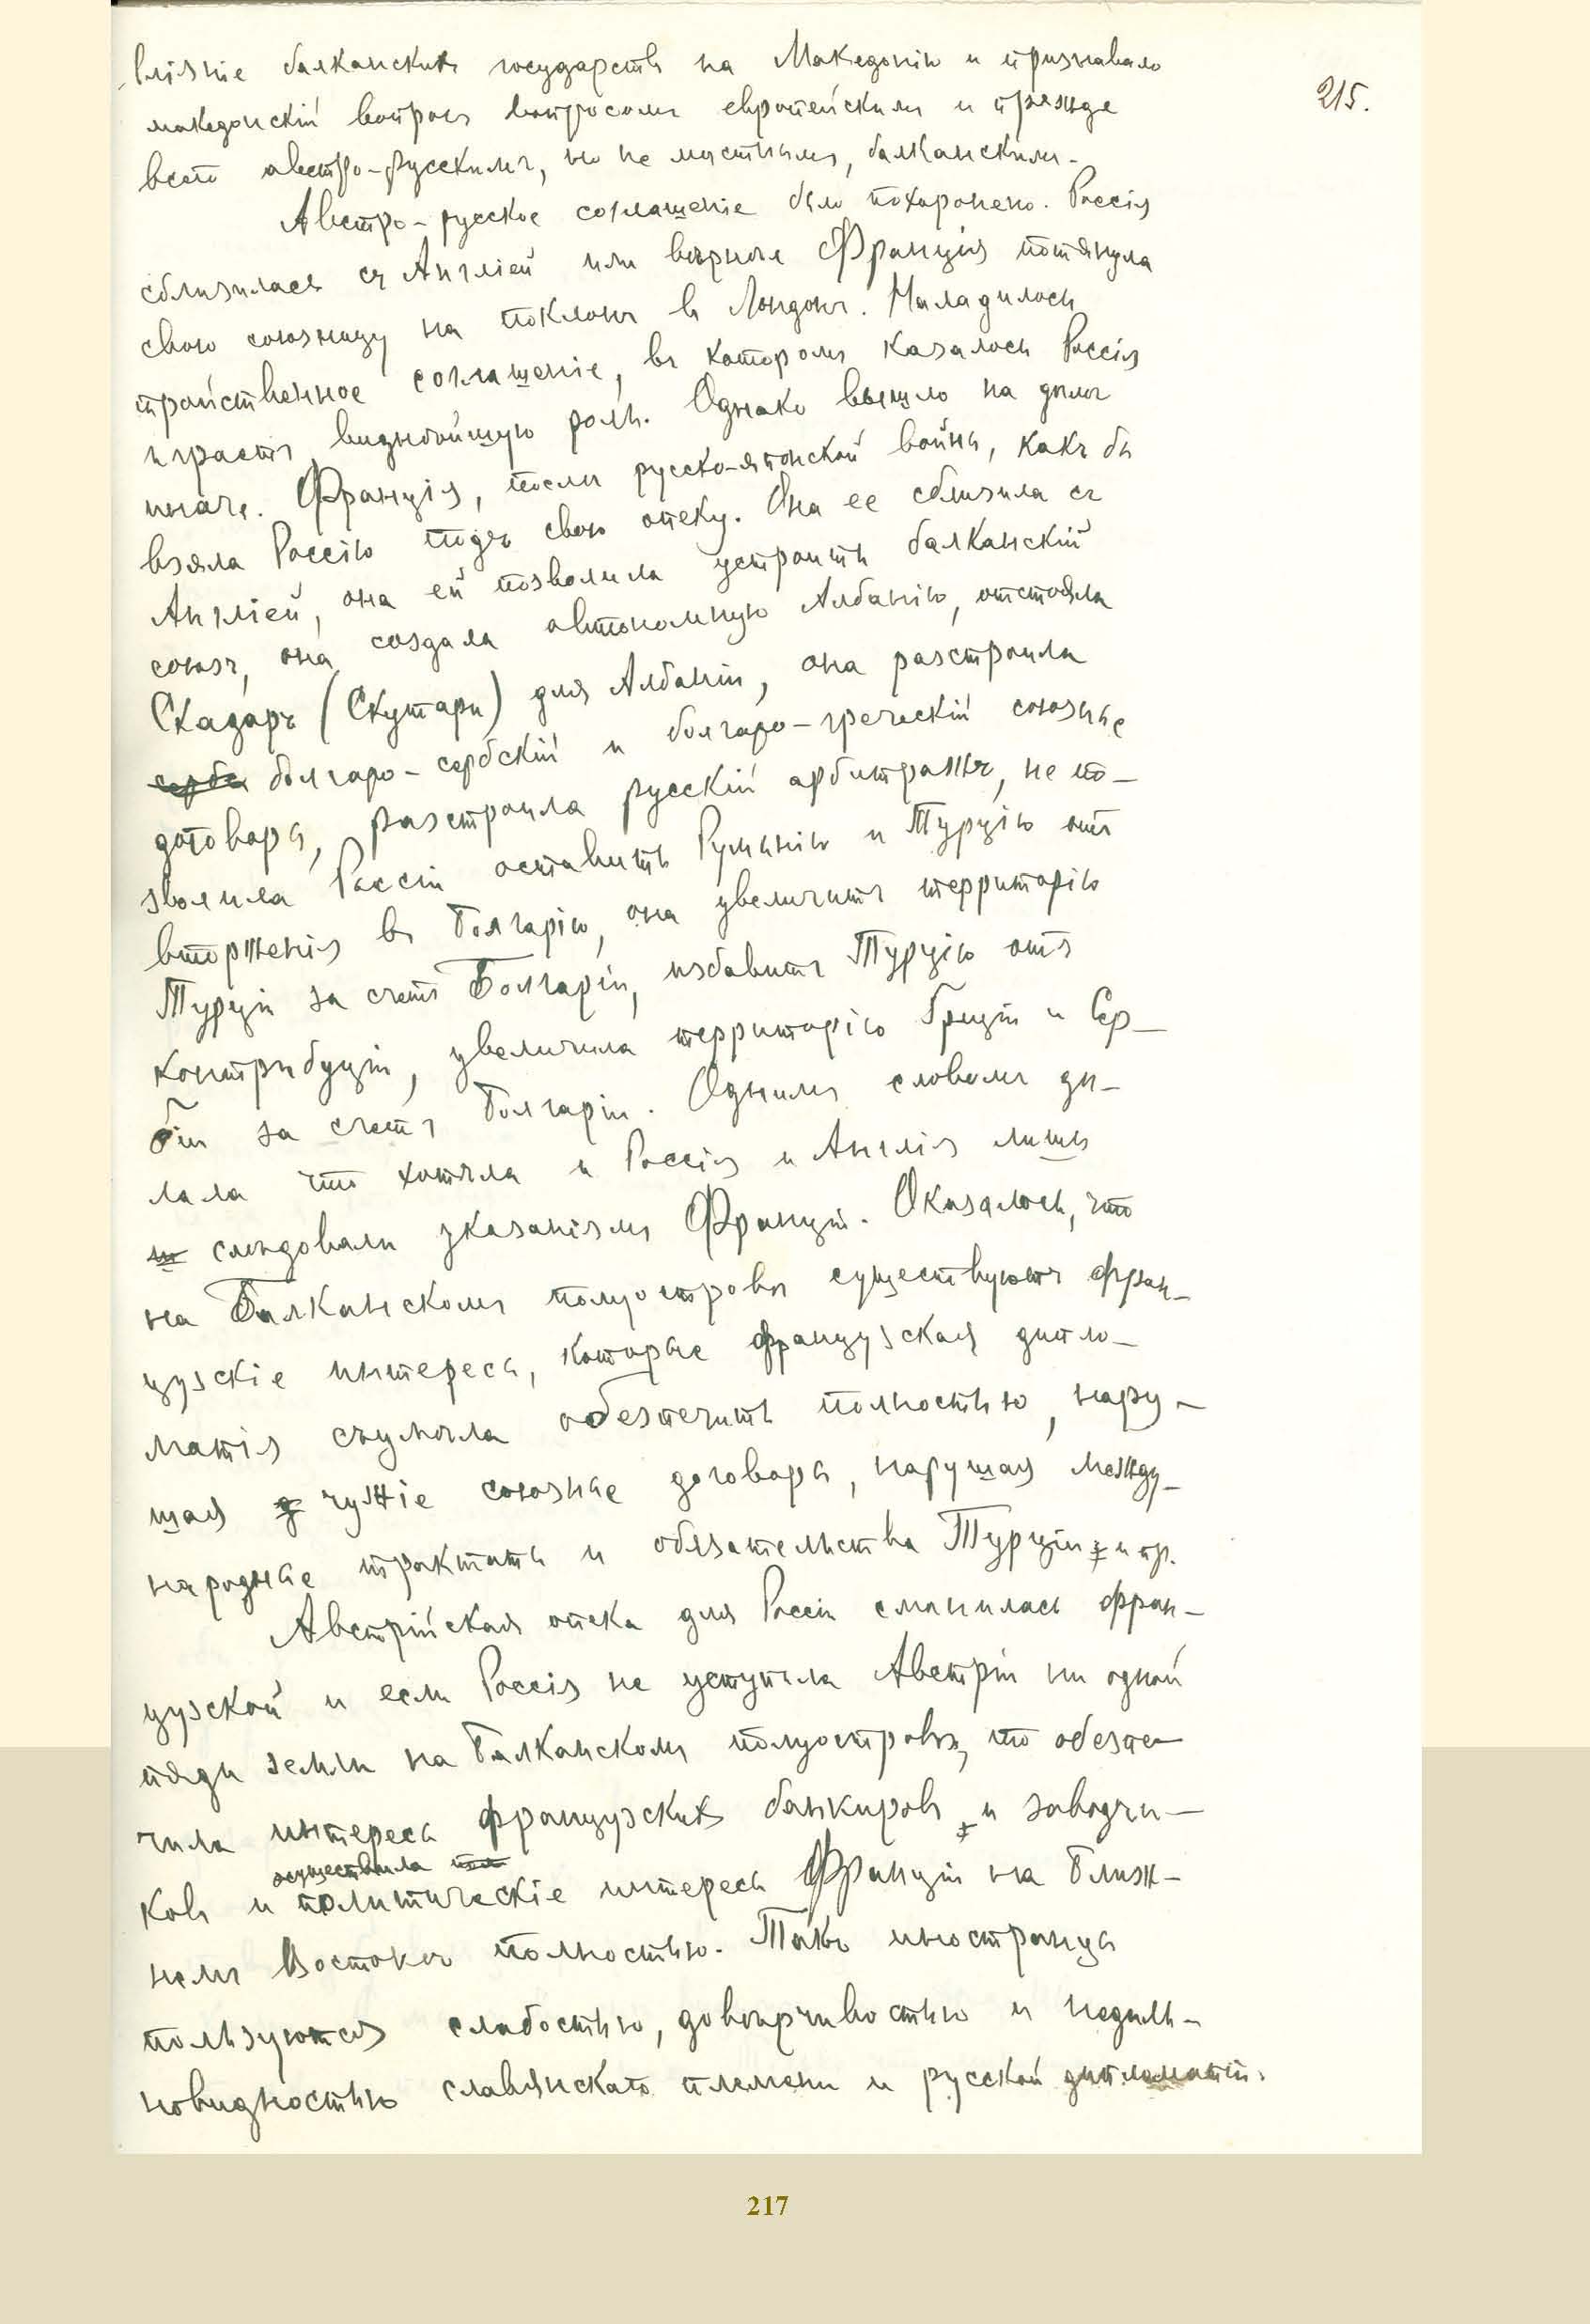 215.
вліяніе балканскихъ государствъ на Македонію и признавало
македонскій вопросъ вопросомъ европейскимъ и прежде
всего австро-русскимъ, но не мѣстнымъ, балканскимъ.
Австро-русское соглашеніе было похоронено. Россія
сблизилась съ Англіей или вѣрнѣе Франція потянула
свою союзницу на поклонъ въ Лондонъ. Наладилось
тройственное соглашеніе, въ которомъ казалось Россія
играетъ виднѣйшую роль. Однако вышло на дѣлѣ
иначе. Франція, послѣ русско-японской войны, какъ бы
взяла Россію подъ свою опеку. Она ее сблизила съ
Англіей, она ей позволила устроить балканскій
союзъ, она создала автономную Албанію, отстояла
Скадаръ (Скутари) для Албаніи, она разстроила
болгаро-сербскій и болгаро-греческій союзные
договоры, разстроила русскій арбитражъ, не по-
зволила Россіи оставить Румынію и Турцію отъ
вторженія въ Болгарію, она увеличитъ территорію
Турціи за счетъ Болгаріи, избавитъ Турцію отъ
контрибуціи, увеличила территорію Греціи и Сер-
біи за счетъ Болгаріи. Однимъ словомъ дѣ-
лала что хотѣла и Россія и Англія лишь
слѣдовали указаніямъ Франціи. Оказалось, что
на Балканскомъ полуостровѣ существуютъ фран-
цузскіе интересы, которые французская дипло-
матія съумѣла обезпечить полностью, нару-
шая чужіе союзные договоры, нарушая между-
народные трактаты и обязательства Турціи и пр.
Австрійская опека для Россіи смѣнилась фран-
цузской и если Россія не уступила Австріи ни одной
пяди земли на Балканскомъ полуостровѣ, то обезпе-
чила интересы французскихъ банкировъ и заводчи-
осуществила
ковъ и политическіе интересы Франціи на Ближ-
немъ Востокѣ полностью. Такъ иностранцы
пользуются слабостью, довѣрчивостью и недаль-
новидностью славянскаго племени и русской дипломатіи.
217